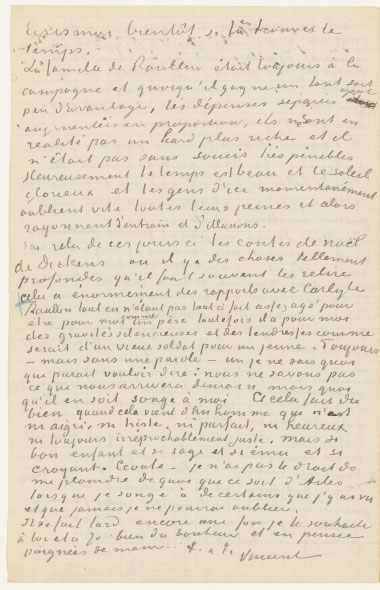 Ecris moi bientôt si tu trouves le
temps.
La famille de Roullin était toujours à la
campagne et quoiqu'il gagne un tout petit
peu d'avantage, les dépenses separées ayant
augmentées en proportion, ils n'en sont en
realité pas un liard plus riche et il
n'était pas sans soucis très pénibles
Heureusement le temps est beau et le soleil
glorieux et les gens d'ici momentanément
oublient vite toutes leurs peines et alors
rayonnent d'entrain et d'illusions.
J'ai relu de ces jours ci les contes de noël
de Dickens où il y a des choses tellement
profondes qu'il faut souvent les relire
cela a énormement des rapports avec Carlyle
Roullin tout en n'étant pas tout à fait assez agé pour
etre pour moi comme un père toutefois il a pour moi
des gravités silencieuses et des tendresses comme
serait d'un vieux soldat pour un jeune. Toujours
– mais sans une parole – un je ne sais quoi
qui parait vouloir dire: nous ne savons pas
ce que nous arrivera demain, mais quoi
qu'il en soit songe à moi Et cela fait du
bien, quand cela vient d'un homme qui n'est
ni aigri, ni triste, ni parfait, ni heureux
ni toujours irréprochablement juste. mais si
bon enfant et si sage et si ému et si
croyant. Ecoute – je n'ai pas le droit de
me plaindre de quoi que ce soit d'Arles
lorsque je songe à de certains que j'y ai vu
et que jamais je ne pourrai oublier.
Il se fait tard encore une fois je te souhaite
à toi et à Jo bien du bonheur et en pensée
poignées de main. t. à t. Vincent